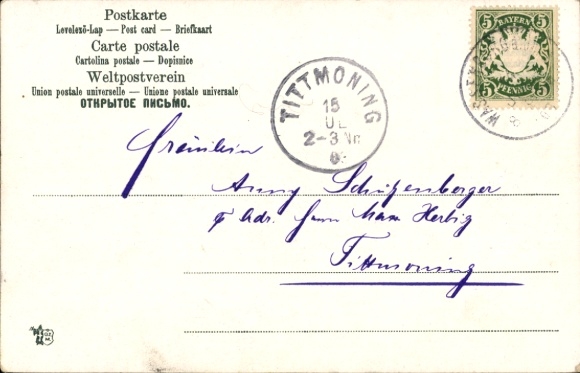 Postkarte
Levelező-Lap — Post card — Briefkaart
Carte postale
Cartolina postale — Dopisnice
Weltpostverein
Union postale universelle — Unione postale universale
ОТКРЫТОЕ ПИСЬМО.
5 BAYERN 5
5 PFENNIG 5
TITTMONING
15
JUL
2-3 Nm
Fräulein
Anny Schützenberger
p. Adr. Herrn Max Herbig
Tittmoning